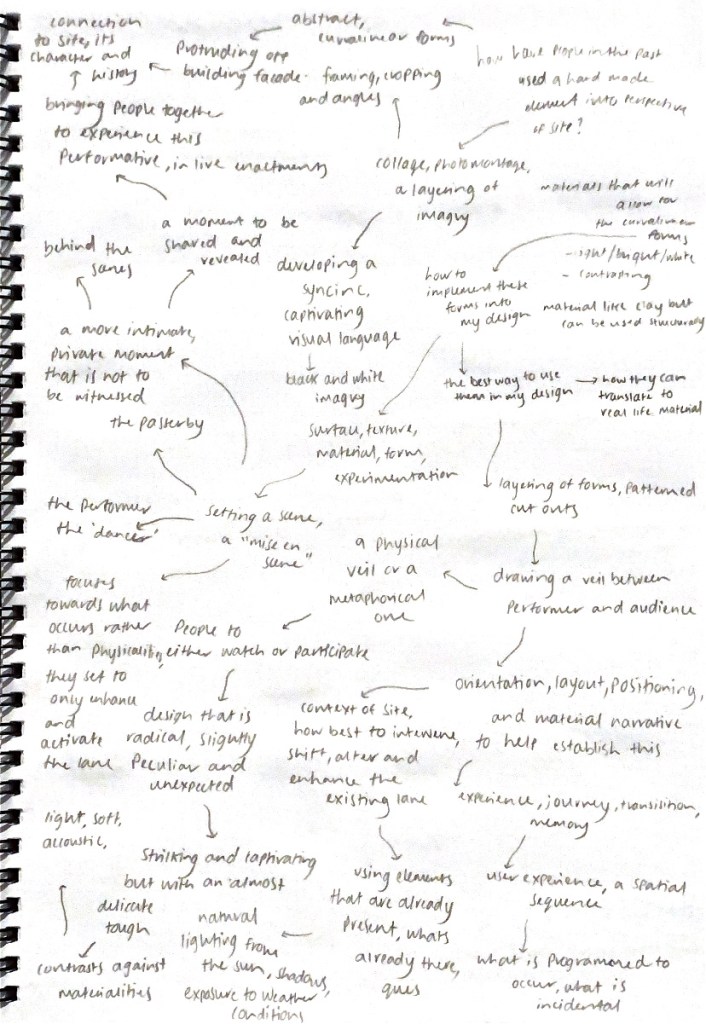 connection
to site, its
character and
history
abstract,
curvalinear forms
Protruding off
building facade.
framing, cropping
and angles
how have people in the past
used a hand made
element into perspective
of site?
bringing people together
to experience this
Performative, in live enactments
collage, photomontage,
a layering of
imagry
materials that will
allow for
the curvalinear
forms
- light/bright/white
- contrasting
material like clay but
can be used structurally
a moment to be
shared and
revealed
behind the
scenes
developing a
syncinc,
captivating
visual language
how to
implement these
forms into
my design
a more intimate,
private moment
that is not to
be witnessed
black and white
imagry
the best way to use
them in my design
how they can
translate to
real life material
the passerby
surface, texture,
material, form,
experimentation
layering of forms, patterned
cut outs
the performer
the 'dancer'
setting a scene,
a "mise en
scene"
a physical
veil or a
metaphorical
one
drawing a veil between
performer and audience
focuses
towards what
occurs rather
than physicality,
they set to
only enhance
and
activate
the lane
People to
either watch or participate
orientation, layout, positioning,
and material narrative
to help establish this
design that is
radical, slightly
Peculiar and
unexpected
context of site,
how best to intervene,
shift, alter and
enhance the
existing lane
experience, journey, transition,
memory
light, soft,
accoustic,
striking and captivating
but with an almost
delicate
tough
using elements
that are already
present, whats
already there,
ques
user experience, a spatial
sequence
natural
lighting from
the sun, shadows,
exposure to weather
conditions
contrasts against
materialities
what is programmed to
occur, what is
incidental